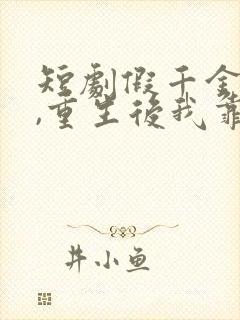 短劇假千金
,重生後我靠
井小鱼